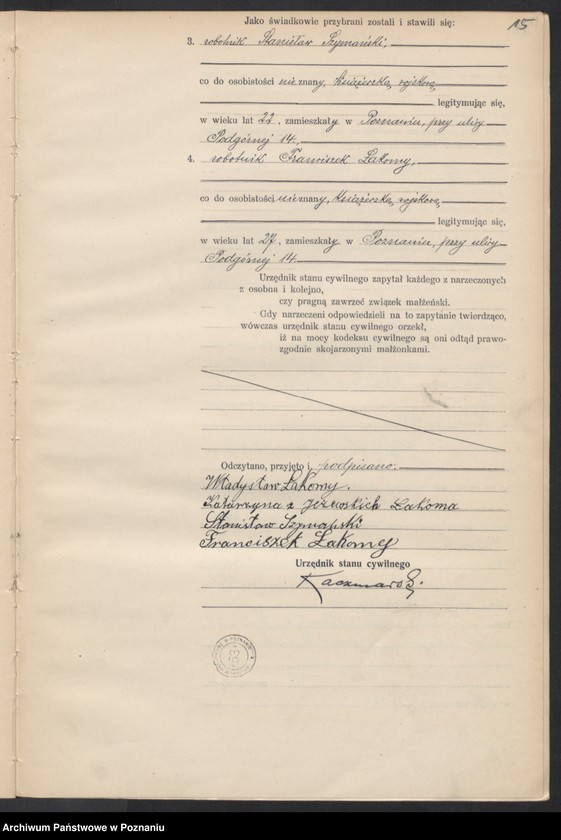 15
Jako świadkowie przybrani zostali i stawili się:
3. robotnik Stanisław Szymański,
co do osobistości nieznany, książeczką wojskową
legitymując się,
w wieku lat 22, zamieszkały w Poznaniu, przy ulicy
Podgórnej 14.
4. robotnik Franciszek Łakomy,
co do osobistości nieznany, książeczką wojskową
legitymując się,
w wieku lat 27, zamieszkały w Poznaniu, przy ulicy
Podgórnej 14.
Urzędnik stanu cywilnego zapytał każdego z narzeczonych
z osobna i kolejno,
czy pragną zawrzeć związek małżeński.
Gdy narzeczeni odpowiedzieli na to zapytanie twierdząco,
wówczas urzędnik stanu cywilnego orzekł,
iż na mocy kodeksu cywilnego są oni odtąd prawo-
zgodnie skojarzonymi małżonkami.
Odczytano, przyjęto i podpisano.
Władysław Łakomy.
Katarzyna z Jeżewskich Łakoma
Stanisław Szymański
Franciszek Łakomy
Urzędnik stanu cywilnego
Archiwum Państwowe w Poznaniu